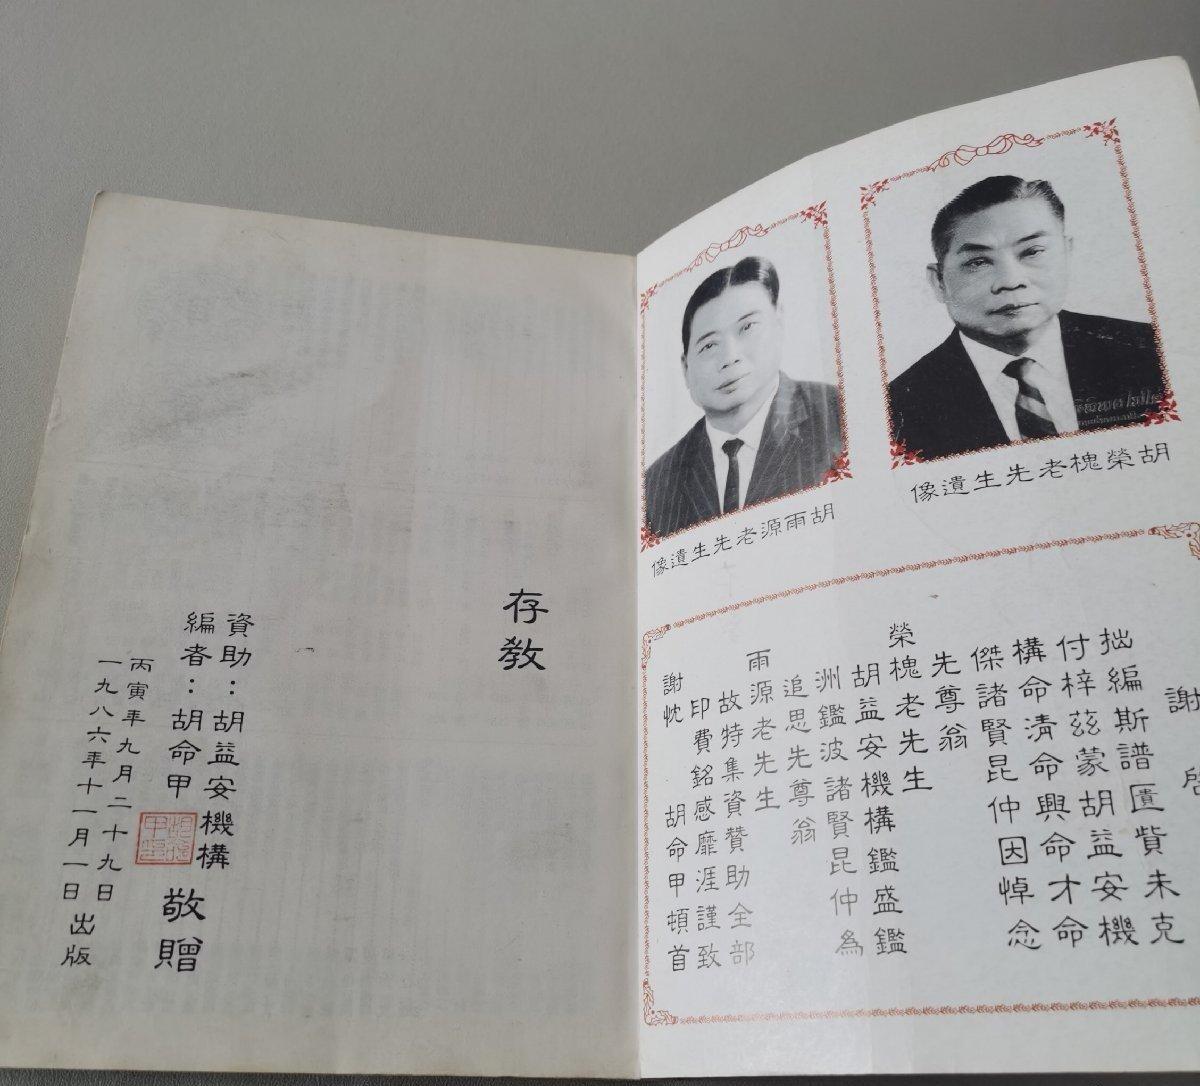 胡榮槐老先生遺像
胡雨源老先生遺像
謝啓
拙編斯譜匱貲未克
付梓茲蒙胡益安機
構命清命興命才命
傑諸賢昆仲因悼念
先尊翁
榮槐老先生
胡益安機構鑑盛鑑
洲鑑波諸賢昆仲為
追思先尊翁
雨源老先生
故特集資贊助全部
印費銘感靡涯謹致
謝忱 胡命甲頓首
存教
資助：胡益安機構
編者：胡命甲
敬贈
丙寅年九月二十九日
一九八六年十一月一日出版